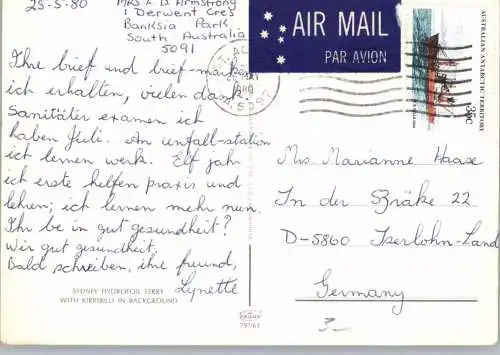 25-5-80
Mrs L D Armstrong
1 Derwent Cres
Banksia Park
South Australia
5091
Ihre brief und brief-marken
ich erhalten, vielen dank
Sanitäter examen ich
haben Juli. Am unfall-station
ich lernen werk. Elf jahr
ich erste helfen praxis und
lehren; ich lernen mehr nun.
Ihr be in gut gesundheit?
Wir gut gesundheit,
Bald schreiben, ihre freund,
Lynette
SYDNEY HYDROFOIL FERRY
WITH KIRRIBILLI IN BACKGROUND
797/61
AIR MAIL
PAR AVION
AUSTRALIAN ANTARCTIC TERRITORY
35c
Mrs. Marianne Haase
In der Bräke 22
D-5860 Iserlohn-Land
Germany
3-